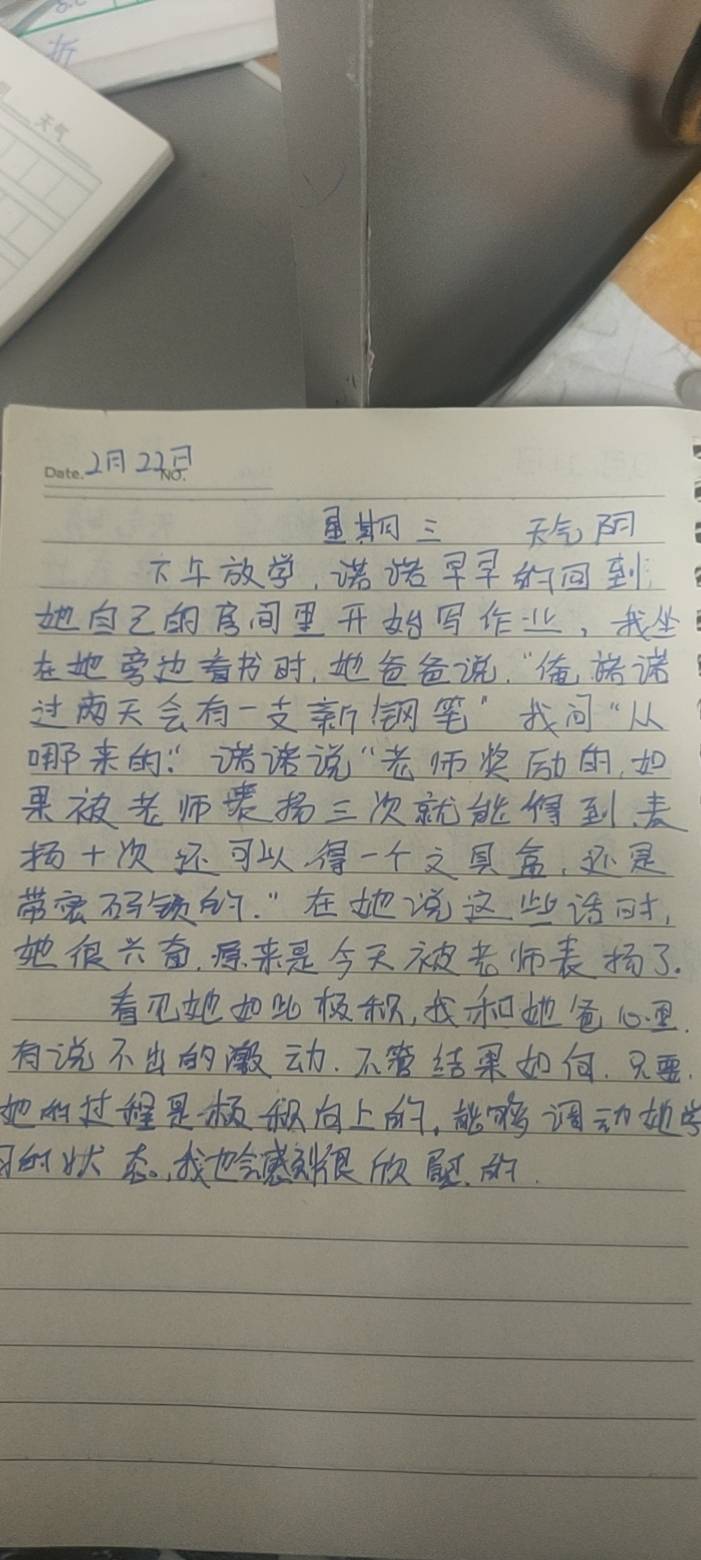 折
天气
Date. 2月22日
NO.
星期三 天气阴
下午放学，诺诺早早的回到
她自己的房间里开始写作业，我坐
在她旁边看书时，她爸爸说，“俺诺诺
过两天会有一支新钢笔”我问“从
哪来的。”诺诺说“老师奖励的，如
果被老师表扬三次就能得到，表
扬十次还可以得一个文具盒，还是
带密码锁的.”在她说这些话时，
她很兴奋，原来是今天被老师表扬了.
看见她如此极积，我和她爸心里
有说不出的激动. 不管结果如何. 只要.
她的过程是极积向上的，能够调动她学
习的状态。，我也会感到很欣慰的.